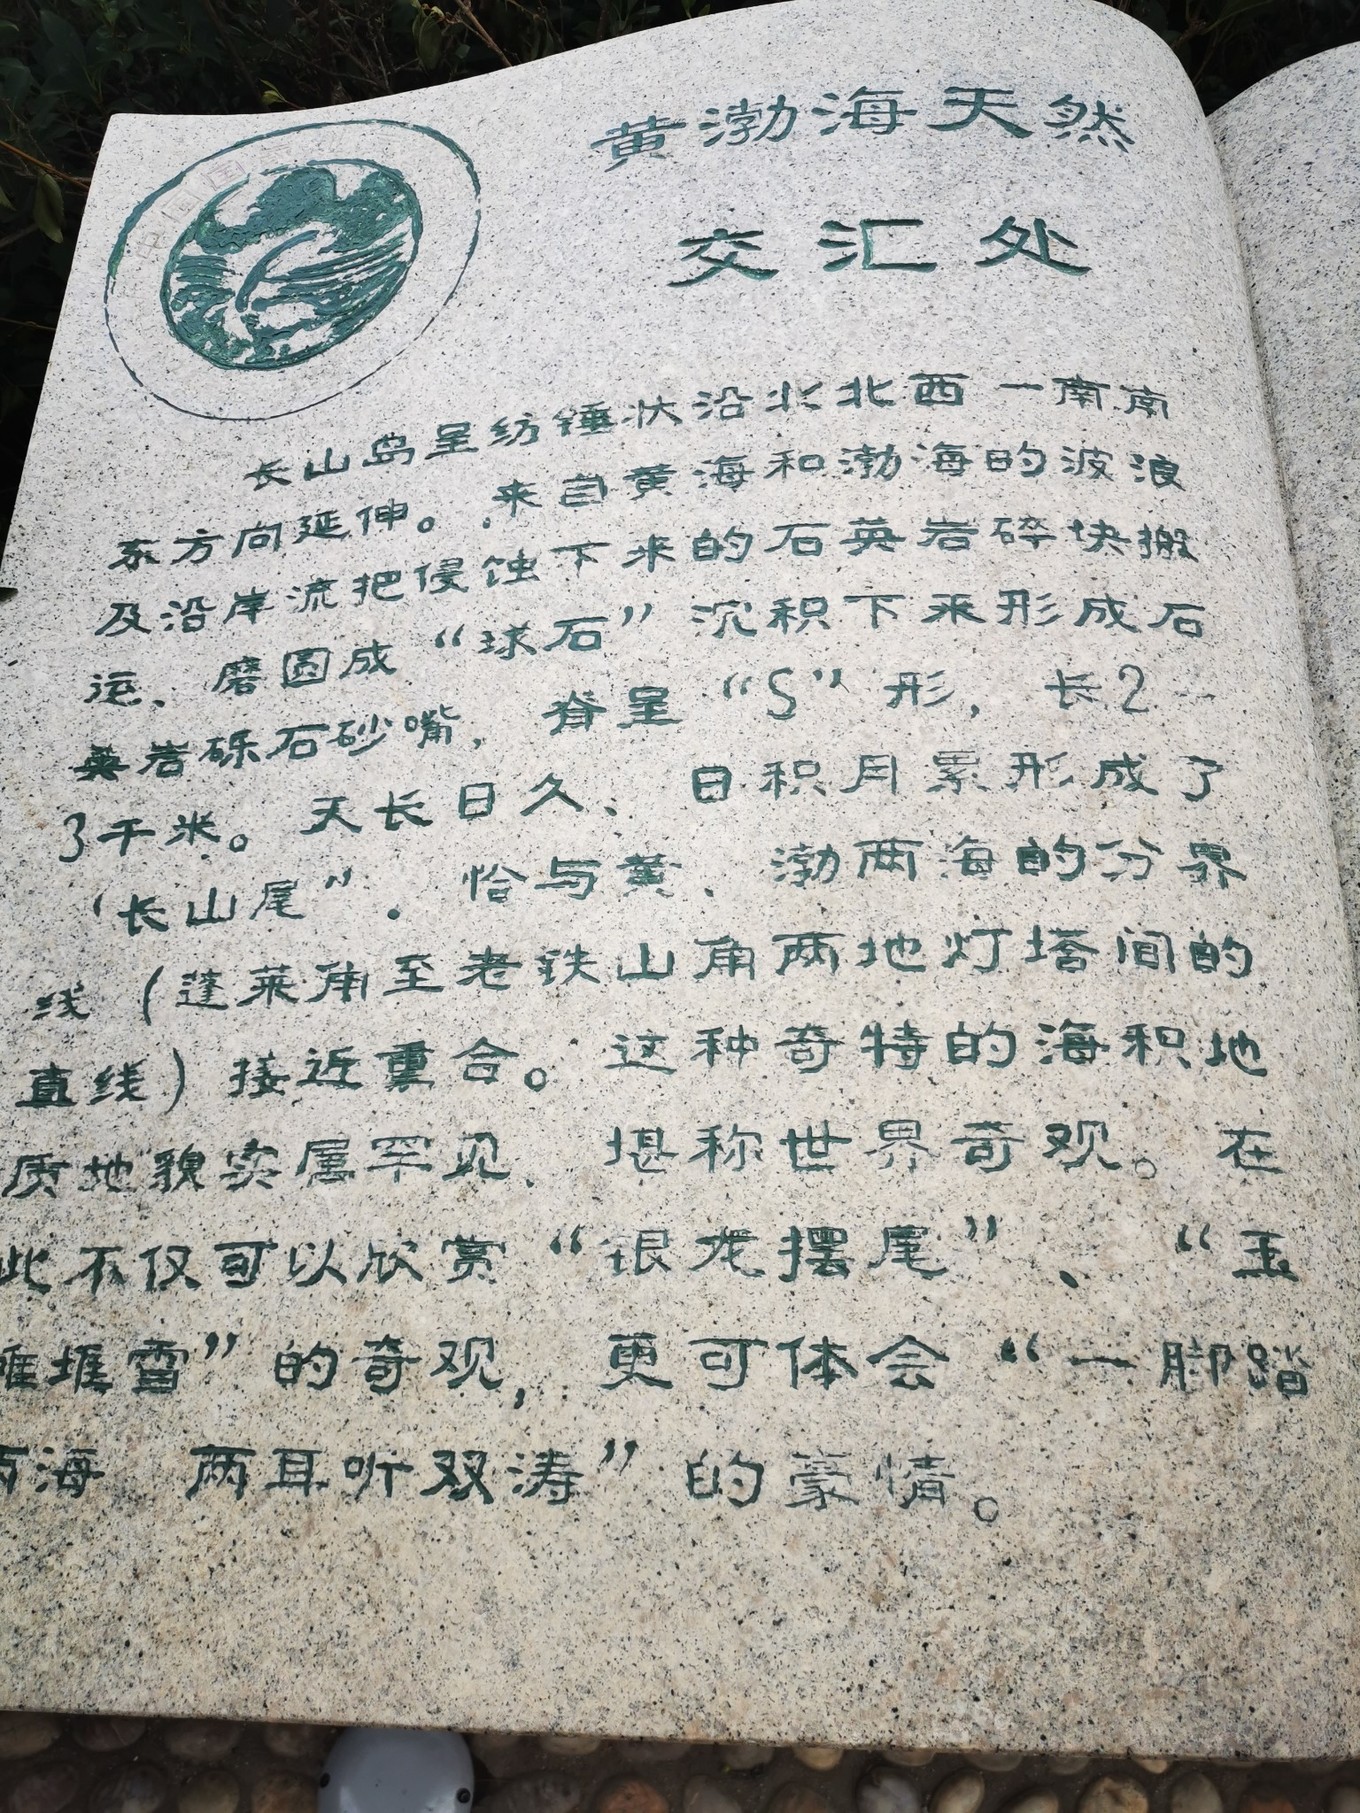 黄渤海天然
交汇处
长山岛呈纺锤状沿北北西一南南
东方向延伸。来自黄海和渤海的波浪
及沿岸流把侵蚀下来的石英岩碎块搬
运、磨圆成“球石”沉积下来形成石
英岩砾石砂嘴,脊呈“S”形,长2-
3千米。天长日久、日积月累形成了
‘长山尾”.恰与黄、渤两海的分界
线(蓬莱角至老铁山角两地灯塔间的
直线)接近重合。这种奇特的海积地
质地貌实属罕见、堪称世界奇观。在
此不仅可以欣赏“银龙摆尾”、“玉
堆雪”的奇观,更可体会“一脚踏
两海 两耳听双涛”的豪情。